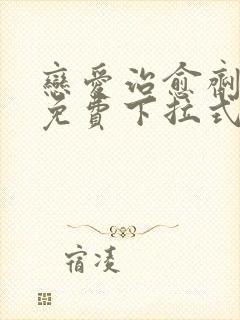 戀愛治愈劑
免費下拉式
宿凌